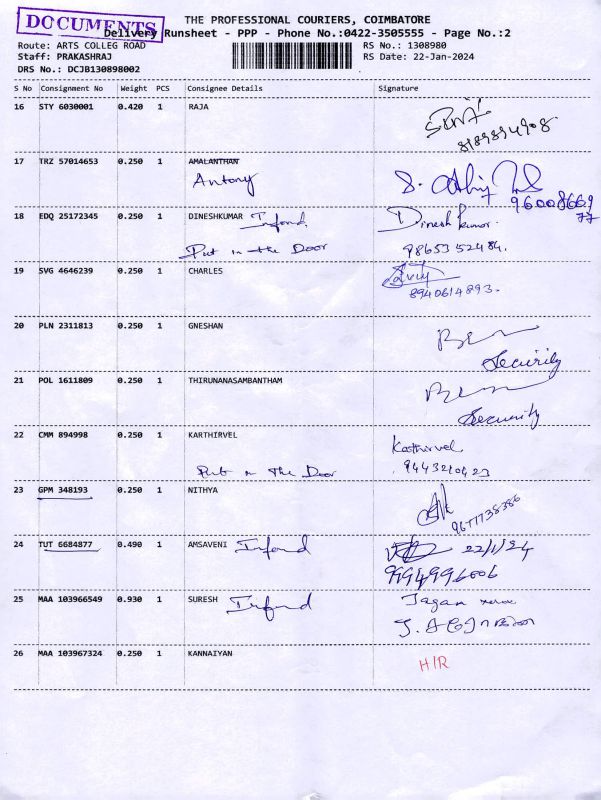 DOCUMENTS
THE PROFESSIONAL COURIERS, COIMBATORE
Delivery Runsheet - PPP - Phone No.:0422-3505555 - Page No.:2
Route: ARTS COLLEG ROAD
RS No.: 1308980
Staff: PRAKASHRAJ
RS Date: 22-Jan-2024
DRS No.: DCJB130898002
S No Consignment No Weight PCS Consignee Details Signature
16 STY 6030001 0.420 1 RAJA
8189894908
17 TRZ 57014653 0.250 1 AMALANTHAN
Antony
96008669
77
18 EDQ 25172345 0.250 1 DINESHKUMAR Infond Dinesh kumar.
Put in the Door 9865352484.
19 SVG 4646239 0.250 1 CHARLES
8940614893.
20 PLN 2311813 0.250 1 GNESHAN
Security
21 POL 1611809 0.250 1 THIRUNANASAMBANTHAM
Security
22 CMM 894998 0.250 1 KARTHIRVEL Kasthirvel
Put in the Door 9443210423
23 GPM 348193 0.250 1 NITHYA
9677738386
24 TUT 6684877 0.490 1 AMSAVENI Infond 22/1/24
9994996006
25 MAA 103966549 0.930 1 SURESH Infond Jagan
26 MAA 103967324 0.250 1 KANNAIYAN H/R